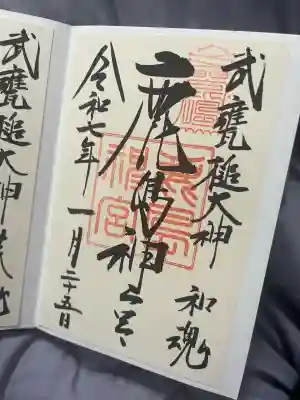 武甕槌大神
和魂
鹿島神宮
令和七年
一月二十五日
武甕槌大神荒